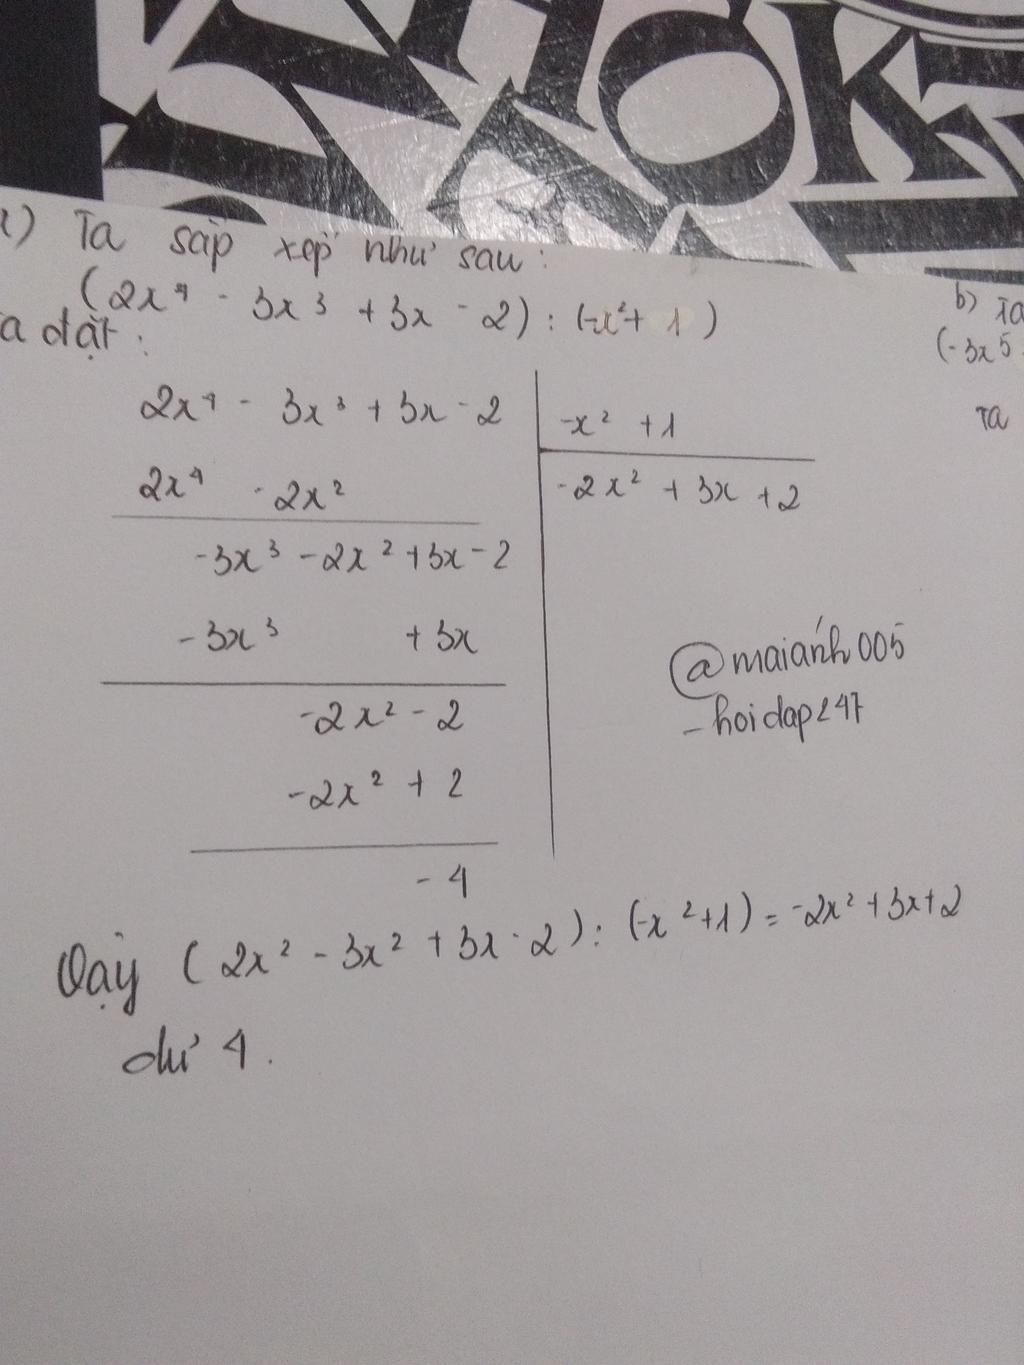 OK
a) Ta sắp xếp như sau:
(2x⁴ - 3x³ + 3x - 2) : (-x² + 1)
Ta đặt:
2x⁴ - 3x³ + 3x - 2
-x² + 1
2x⁴ - 2x²
-2x² + 3x + 2
-3x³ - 2x² + 3x - 2
-3x³ + 3x
-2x² - 2
-2x² + 2
- 4
@maianh005
- hoidap247
Vậy (2x² - 3x² + 3x - 2) : (-x² + 1) = -2x² + 3x + 2
dư 4.
b) Ta
(-3x⁵
Ta